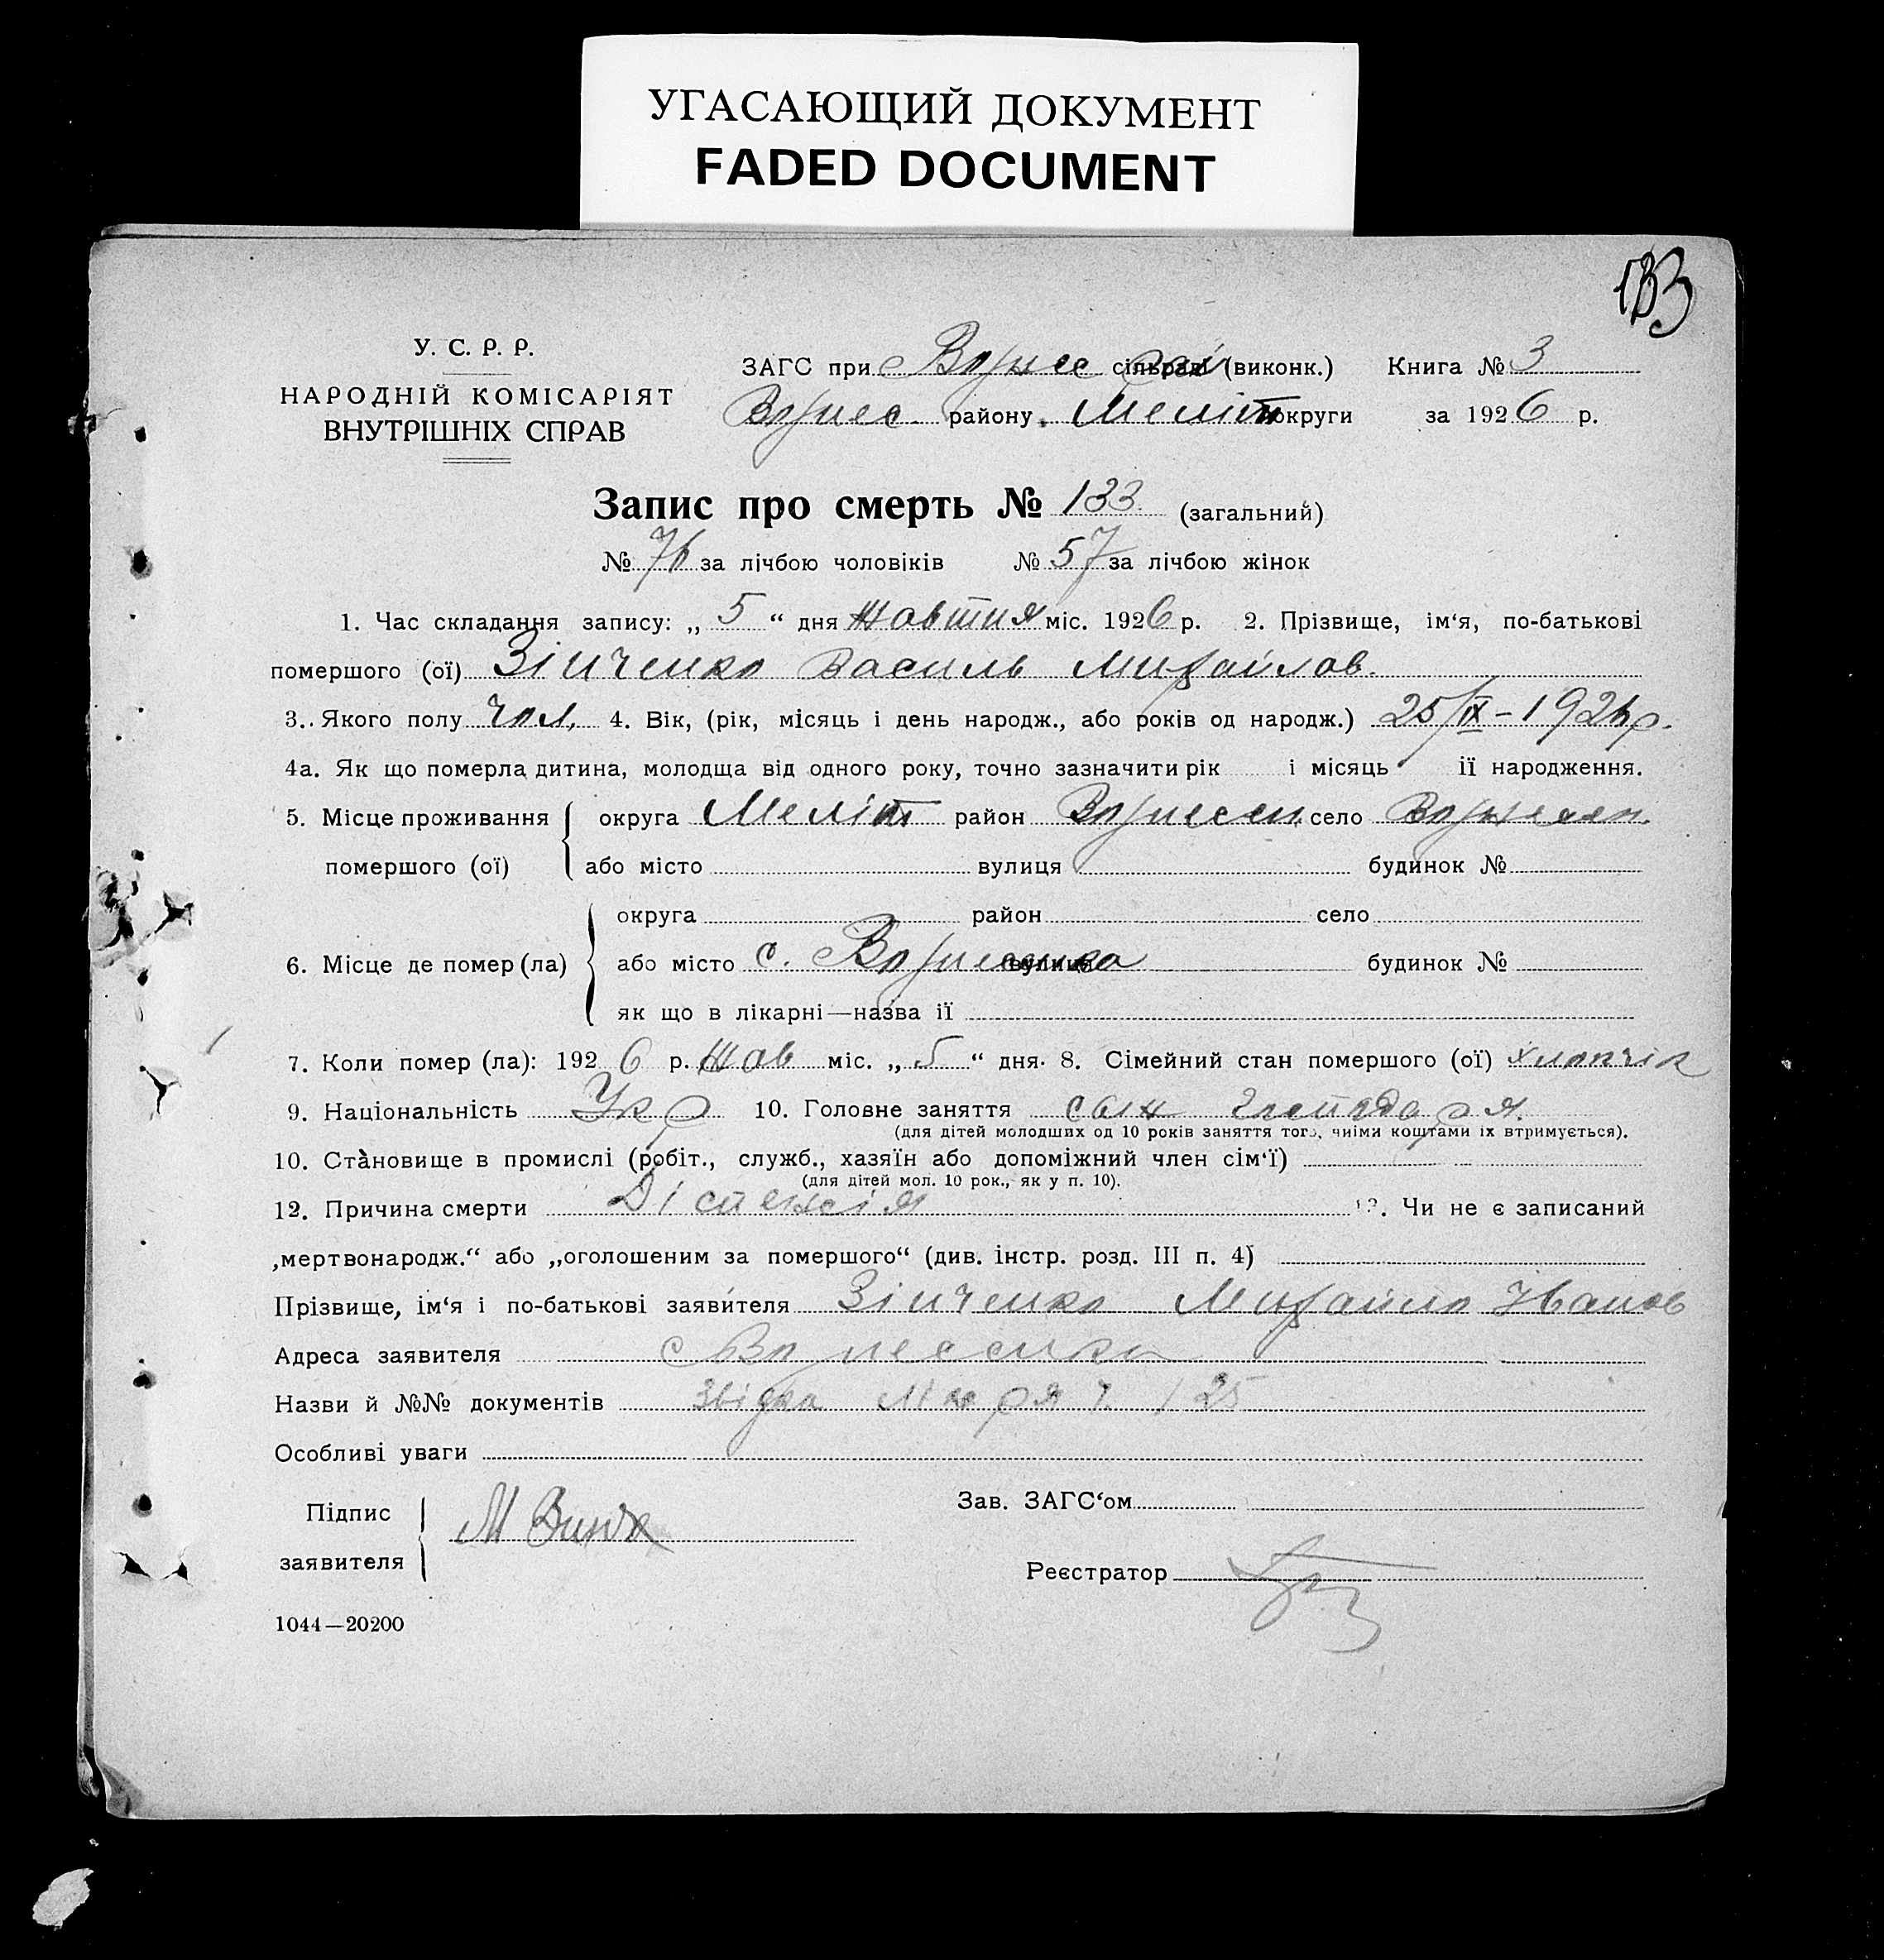 УГАСАЮЩИЙ ДОКУМЕНТ
FADED DOCUMENT
133
У. С. Р. Р.
НАРОДНІЙ КОМІСАРІЯТ
ВНУТРІШНІХ СПРАВ
ЗАГС при Вознес сільраді (виконк.) Книга № 3
Вознес. району, Меліт округи за 1926 р.
Запис про смерть № 133 (загальний)
№ 76 за лічбою чоловіків № 57 за лічбою жінок
1. Час складання запису: „ 5 “ дня Жовтня міс. 1926 р. 2. Прізвище, ім‘я, по-батькові
помершого (ої) Зінченко Василь Михайлов.
3. Якого полу чол. 4. Вік, (рік, місяць і день народж., або років од народж.) 25/IX – 192 р.
4а. Як що померла дитина, молодща від одного року, точно зазначити рік і місяць її народження.
5. Місце проживання округа Меліт район Вознесен. село Вознесен.
помершого (ої) або місто вулиця будинок №
округа район село
6. Місце де помер (ла) або місто с. Вознесенка вулиця будинок №
як що в лікарні—назва її
7. Коли помер (ла): 1926 р. Жов міс. „ 5 “ дня. 8. Сімейний стан помершого (ої) хлопчік
9. Національність Укр 10. Головне заняття син господаря.
(для дітей молодших од 10 років заняття того, чиїми коштами їх втримується).
10. Становище в промислі (робіт., служб., хазяїн або допоміжний член сім‘ї)
(для дітей мол. 10 рок., як у п. 10).
12. Причина смерти Діспенсія 13. Чи не є записаний
„мертвонародж.“ або „оголошеним за помершого“ (див. інстр. розд. III п. 4)
Прізвище, ім‘я і по-батькові заявителя Зінченко Михайло Іванов
Адреса заявителя с Вознесенка
Назви й №№ документів Звідка лікаря 125
Особливі уваги
Підпис
заявителя М
Зав. ЗАГС‘ом
Реєстратор
1044—20200